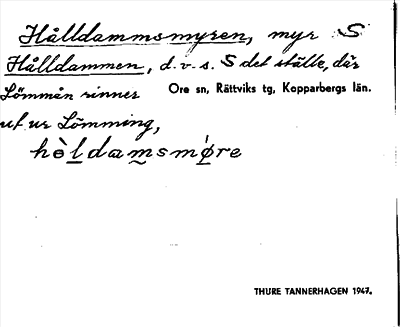 Hålldammsmyren, myr S
Hålldammen, d.v.s. S det ställe, där
Lömmån rinner Ore sn, Rättviks tg, Kopparbergs län.
ut ur Lömming,
hòldamsmǿre
THURE TANNERHAGEN 1947.